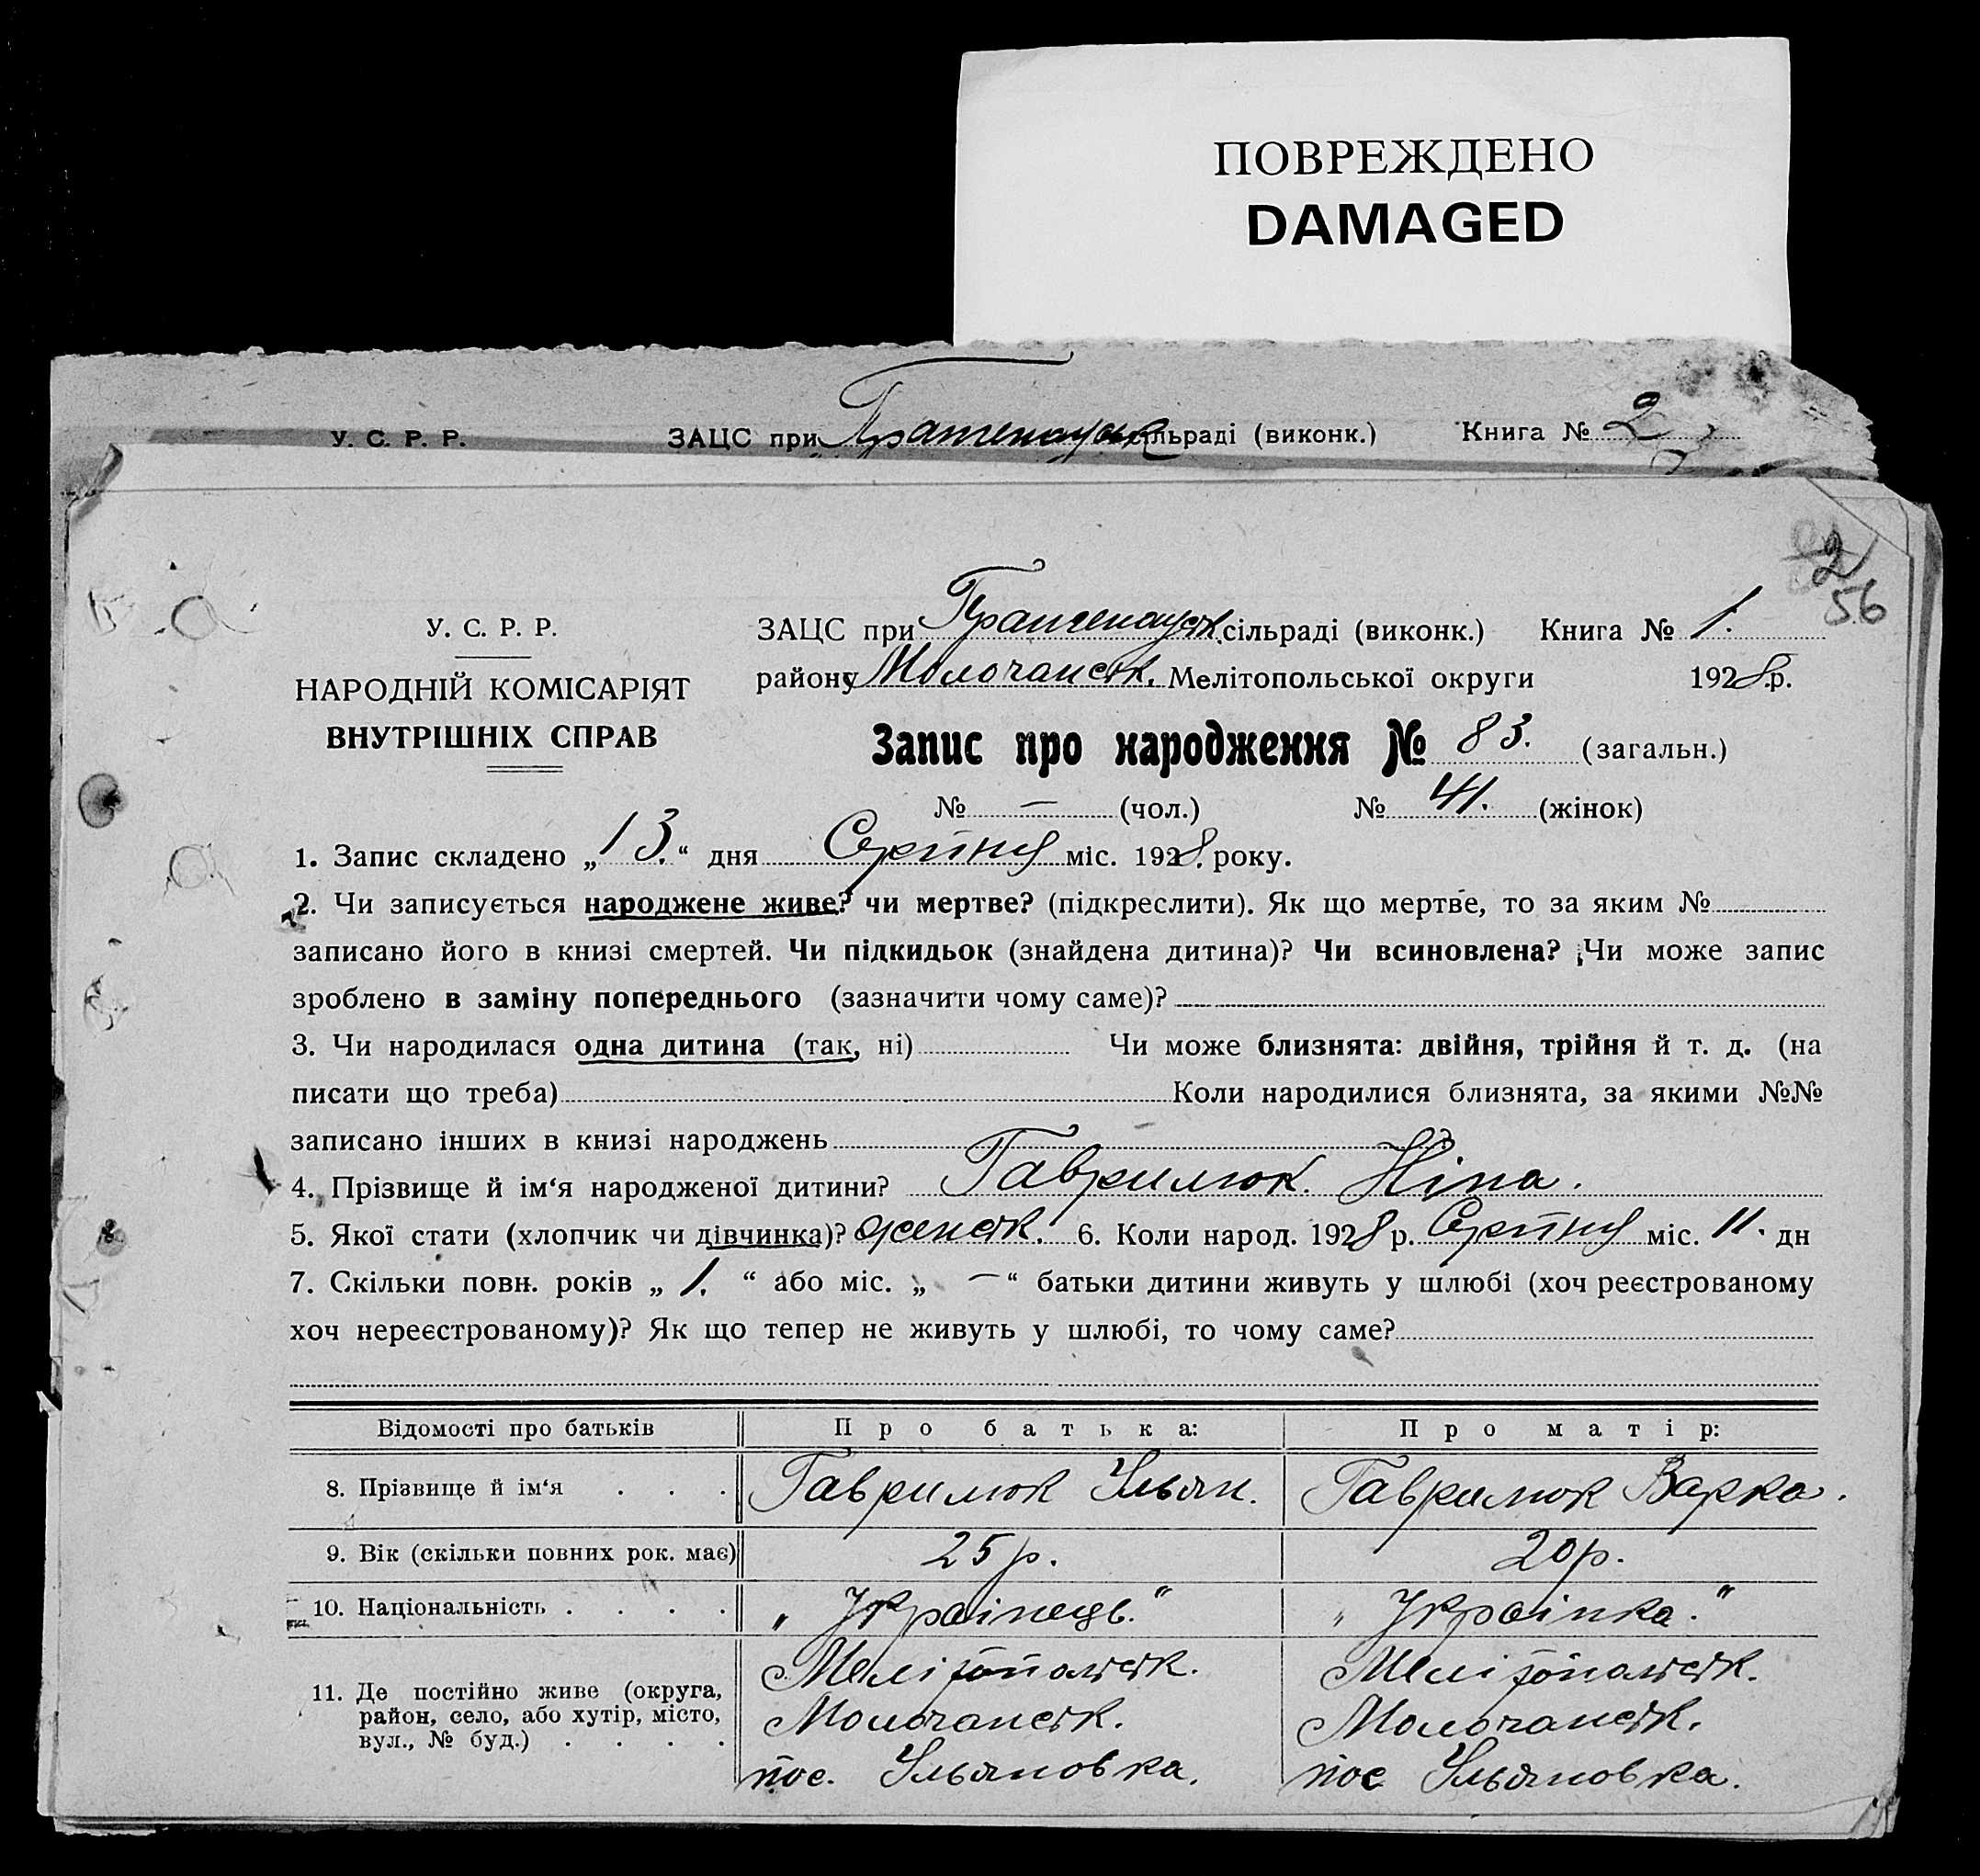 ПОВРЕЖДЕНО
DAMAGED
У. С. Р. Р. ЗАЦС при сільраді (виконк.) Книга № 2
2
56
У. С. Р. Р. ЗАЦС при сільраді (виконк.) Книга № 1.
НАРОДНІЙ КОМІСАРІЯТ району Молочанськ. Мелітопольської округи 1928 р.
ВНУТРІШНІХ СПРАВ Запис про народження № 83. (загальн.)
№ — (чол.) № 41. (жінок)
1. Запис складено „13.“ дня Серпня міс. 1928. року.
2. Чи записується народжене живе? чи мертве? (підкреслити). Як що мертве, то за яким №
записано його в книзі смертей. Чи підкидьок (знайдена дитина)? Чи всиновлена? Чи може запис
зроблено в заміну попереднього (зазначити чому саме)?
3. Чи народилася одна дитина (так, ні) Чи може близнята: двійня, трійня й т. д. (на
писати що треба) Коли народилися близнята, за якими №№
записано інших в книзі народжень
4. Прізвище й ім‘я народженої дитини? Гаврилюк. Ніна.
5. Якої стати (хлопчик чи дівчинка)? женськ. 6. Коли народ. 1928 р. Серпня міс. 11. дн
7. Скільки повн. років „ 1. “ або міс. „ — “ батьки дитини живуть у шлюбі (хоч реєстрованому
хоч нереєстрованому)? Як що тепер не живуть у шлюбі, то чому саме?
Відомості про батьків Про батька: Про матір:
8. Прізвище й ім‘я . . . Гаврилюк Ульян. Гаврилюк Варка.
9. Вік (скільки повних рок. має) 25 р. 20 р.
10. Національність . . . . „Українець.“ „Українка.“
11. Де постійно живе (округа, район, село, або хутір, місто, вул., № буд.) . . . .
Мелітопольськ. Мелітопольськ.
Молочанськ. Молочанськ.
пос. Ульяновка. пос Ульяновка.